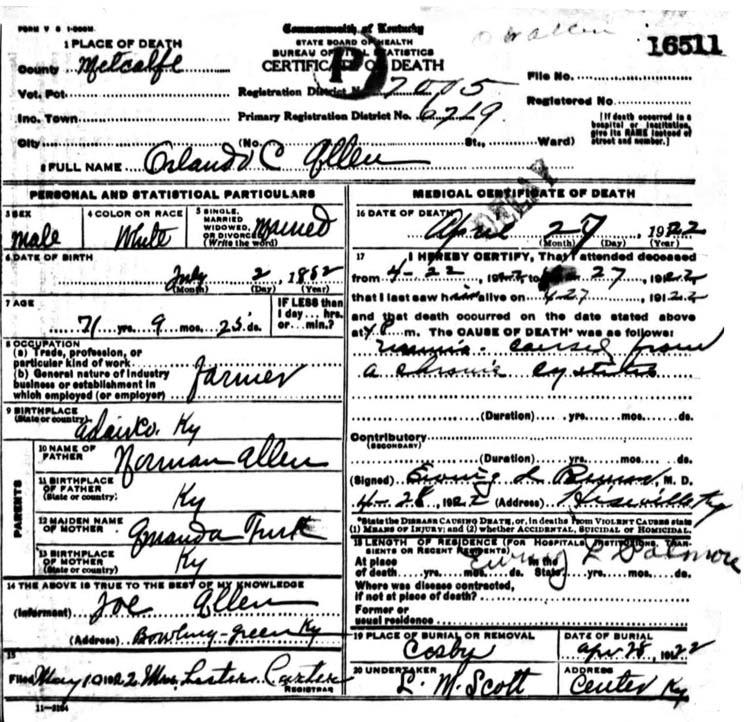 FORM V S 1-500M
Commonwealth of Kentucky
STATE BOARD OF HEALTH
BUREAU OF VITAL STATISTICS
CERTIFICATE OF DEATH
O Wallen
16511
1 PLACE OF DEATH
County Metcalfe
Vot. Pct
Inc. Town
City
(No.
St.,
Ward)
P
Registration District No. 7005
Primary Registration District No. 6719
File No.
Registered No.
[If death occurred in a hospital or institution, give its NAME instead of street and number.]
2 FULL NAME Orlando C Allen
DELAY
PERSONAL AND STATISTICAL PARTICULARS
3 SEX
Male
4 COLOR OR RACE
White
5 SINGLE, MARRIED WIDOWED, OR DIVORCED (Write the word)
Married
6 DATE OF BIRTH
July 2, 1852
(Month) (Day) (Year)
7 AGE
71 yrs. 9 mos. 25 ds.
IF LESS than 1 day... hrs. or... min.?
8 OCCUPATION
(a) Trade, profession, or particular kind of work
(b) General nature of industry business or establishment in which employed (or employer)
farmer
9 BIRTHPLACE
(State or country)
Adair Co. Ky
PARENTS
10 NAME OF FATHER
Norman Allen
11 BIRTHPLACE OF FATHER
(State or country)
Ky
12 MAIDEN NAME OF MOTHER
Amanda Turk
13 BIRTHPLACE OF MOTHER
(State or country)
Ky
14 THE ABOVE IS TRUE TO THE BEST OF MY KNOWLEDGE
(Informant) Joe Allen
(Address) Bowling-green Ky
15
Filed May 10 1922 Mrs. Lester Carter
REGISTRAR
11-3184
MEDICAL CERTIFICATE OF DEATH
16 DATE OF DEATH
April 27, 1922
(Month) (Day) (Year)
17 I HEREBY CERTIFY, That I attended deceased
from 4-22, 1922 to 27, 1922
that I last saw him alive on 4 27, 1922
and that death occurred on the date stated above
at 48 m. The CAUSE OF DEATH* was as follows:
caused from
a chronic cystitis
(Duration) yrs. mos. ds.
Contributory
(SECONDARY)
(Duration) yrs. mos. ds.
(Signed) M. D.
4-28, 1922 (Address) Hiseville Ky
*State the DISEASE CAUSING DEATH, or, in deaths from VIOLENT CAUSES state
(1) MEANS OF INJURY; and (2) whether ACCIDENTAL, SUICIDAL or HOMICIDAL.
18 LENGTH OF RESIDENCE (FOR HOSPITALS, INSTITUTIONS, TRANSIENTS OR RECENT RESIDENTS)
At place of death yrs. mos. ds.
In the State yrs. mos. ds.
Where was disease contracted, if not at place of death?
Former or usual residence
19 PLACE OF BURIAL OR REMOVAL
Cosby
DATE OF BURIAL
Apr 28, 1922
20 UNDERTAKER
L. M. Scott
ADDRESS
Center Ky